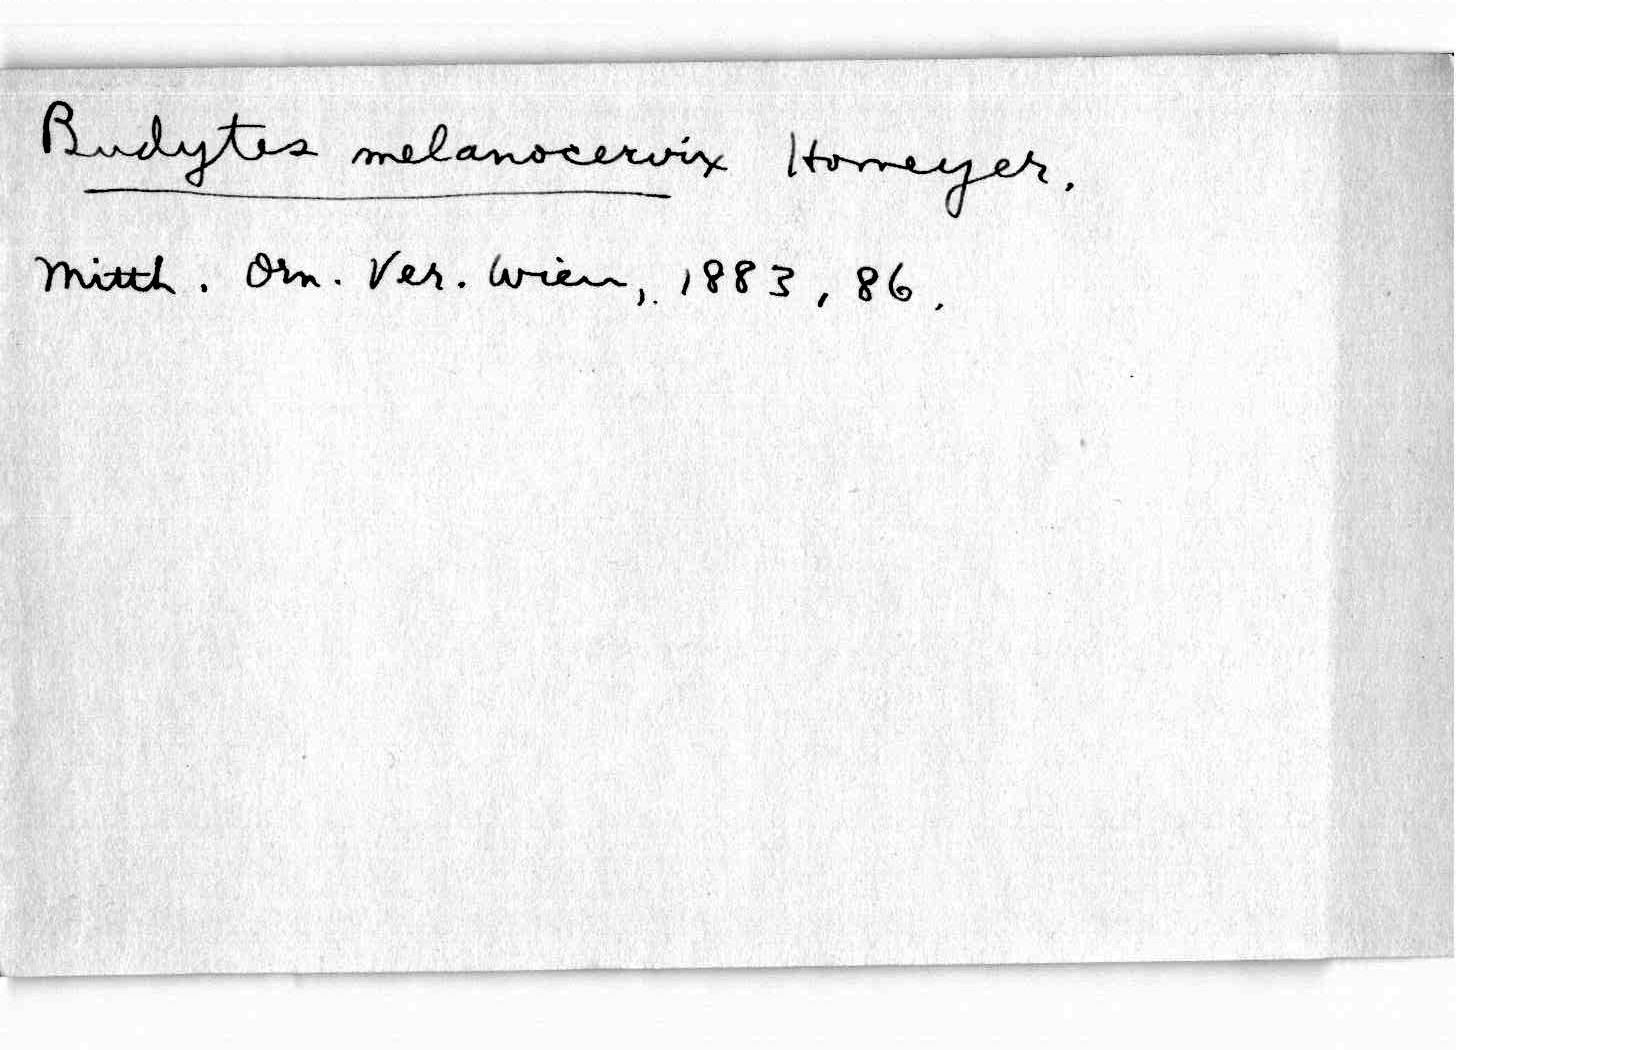 Budytes melanocervix Homeyer.
Mitth. Orn. Ver. Wien, 1883, 86.